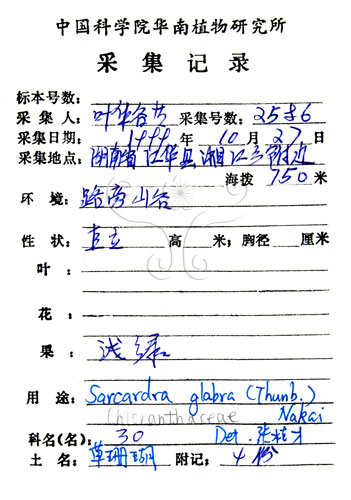 中国科学院华南植物研究所
采集记录
标本号数:
采集人:叶华谷 采集号数:2586
采集日期:1999年10月27日
采集地点:湖南省江华县湘江乡附近
海拨 750 米
环境:路旁山谷
性状:直立 高 米;胸径 厘米
叶:
花:
果:浅绿
用途:Sarcardra glabra (Thunb.)
Chloranthaceae Nakai
科名(名):30 Det. 张桂才
土名:草珊瑚 附记:4份